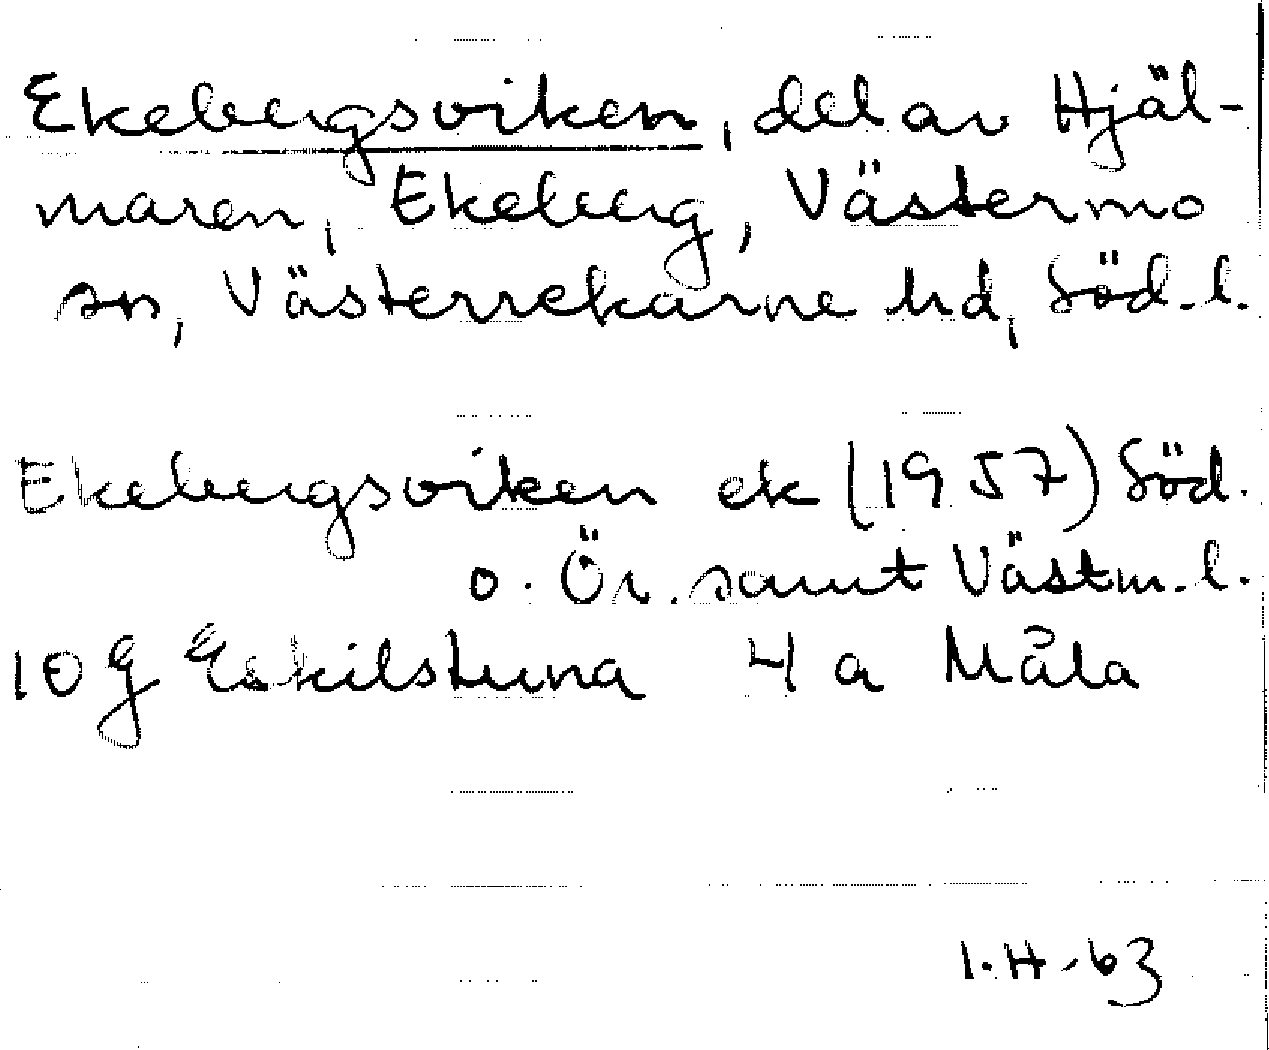 Ekebergsviken, del av Hjäl-
maren, Ekeberg, Västermo
sn, Västerrekarne hd, Söd. l.
Ekebergsviken ek (1957) Söd.
o. Ör. samt Västm. l.
10 g Eskilstuna 4 a Måla
I. H-63